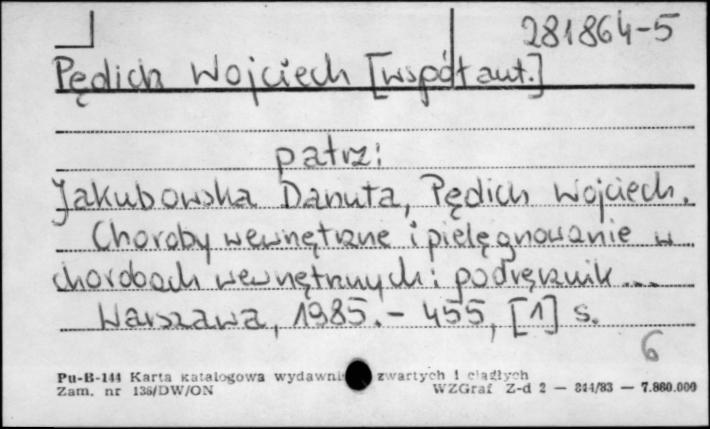 281864-5
Pędich Wojciech [współaut.]
patrz:
Jakubowska Danuta, Pędich Wojciech.
Choroby wewnętrzne i pielęgnowanie w
chorobach wewnętrznych : podręcznik ...
Warszawa, 1985. - 455, [1] s.
6
Pu-B-144 Karta katalogowa wydawni zwartych i ciągłych
Zam. nr 136/DW/ON WZGraf Z-d 2 — 844/83 — 7.860.000